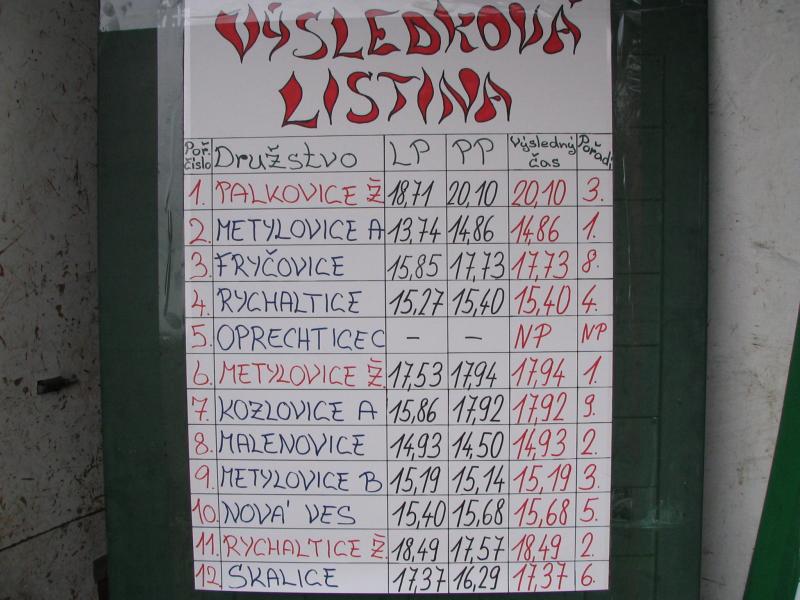 VÝSLEDKOVÁ
LISTINA
Poř. číslo Družstvo LP PP Výsledný čas Pořadí
1. PALKOVICE Ž 18,71 20,10 20,10 3.
2. METYLOVICE A 13,74 14,86 14,86 1.
3. FRYČOVICE 15,85 17,73 17,73 8.
4. RYCHALTICE 15,27 15,40 15,40 4.
5. OPRECHTICE C – – NP NP
6. METYLOVICE Ž. 17,53 17,94 17,94 1.
7. KOZLOVICE A 15,86 17,92 17,92 9.
8. MALENOVICE 14,93 14,50 14,93 2.
9. METYLOVICE B 15,19 15,14 15,19 3.
10. NOVÁ VES 15,40 15,68 15,68 5.
11. RYCHALTICE Ž. 18,49 17,57 18,49 2.
12. SKALICE 17,37 16,29 17,37 6.